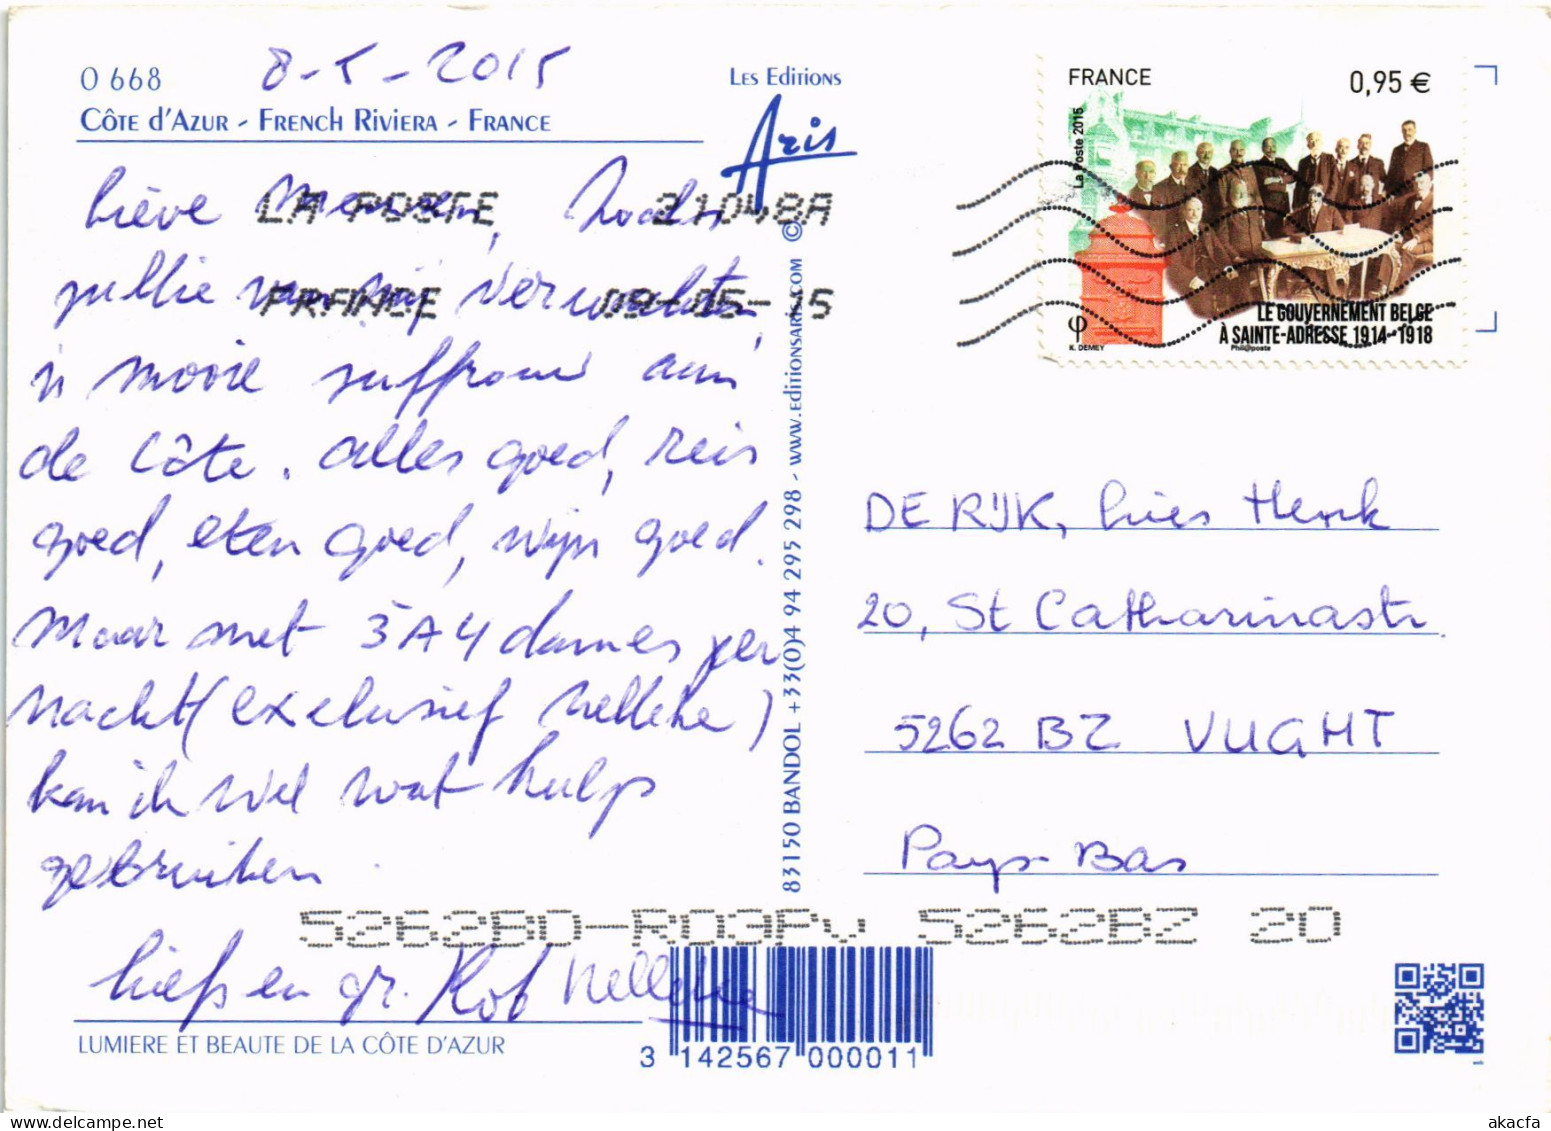 O 668
8-5-2015
CÔTE d'AZUR - FRENCH RIVIERA - FRANCE
LES EDITIONS
Aris
lieve Mensen, zoals
jullie van mij verwachten,
'n mooie juffrouw aan
de Côte. alles goed, reis
goed, eten goed, wijn goed.
Maar met 3 A 4 dames per
nacht (exclusief Nelleke)
kan ik wel wat hulp
gebruiken.
liefs en gr. Rob Nelleke
LUMIERE ET BEAUTE DE LA CÔTE D'AZUR
83150 BANDOL +33(0)4 94 295 298 - WWW.EDITIONSARIS.COM ©
LA POSTE 21048A
FRANCE 09-05-15
FRANCE 0,95 €
La Poste 2015
LE GOUVERNEMENT BELGE
À SAINTE-ADRESSE 1914-1918
K. DEMEY
Phil@poste
DE RIJK, Lies Henk
20, St Catharinastr.
5262 BZ VUGHT
Pays-Bas
5262BD-RD3Pv 5262BZ 20
3 142567 000011
akacfa